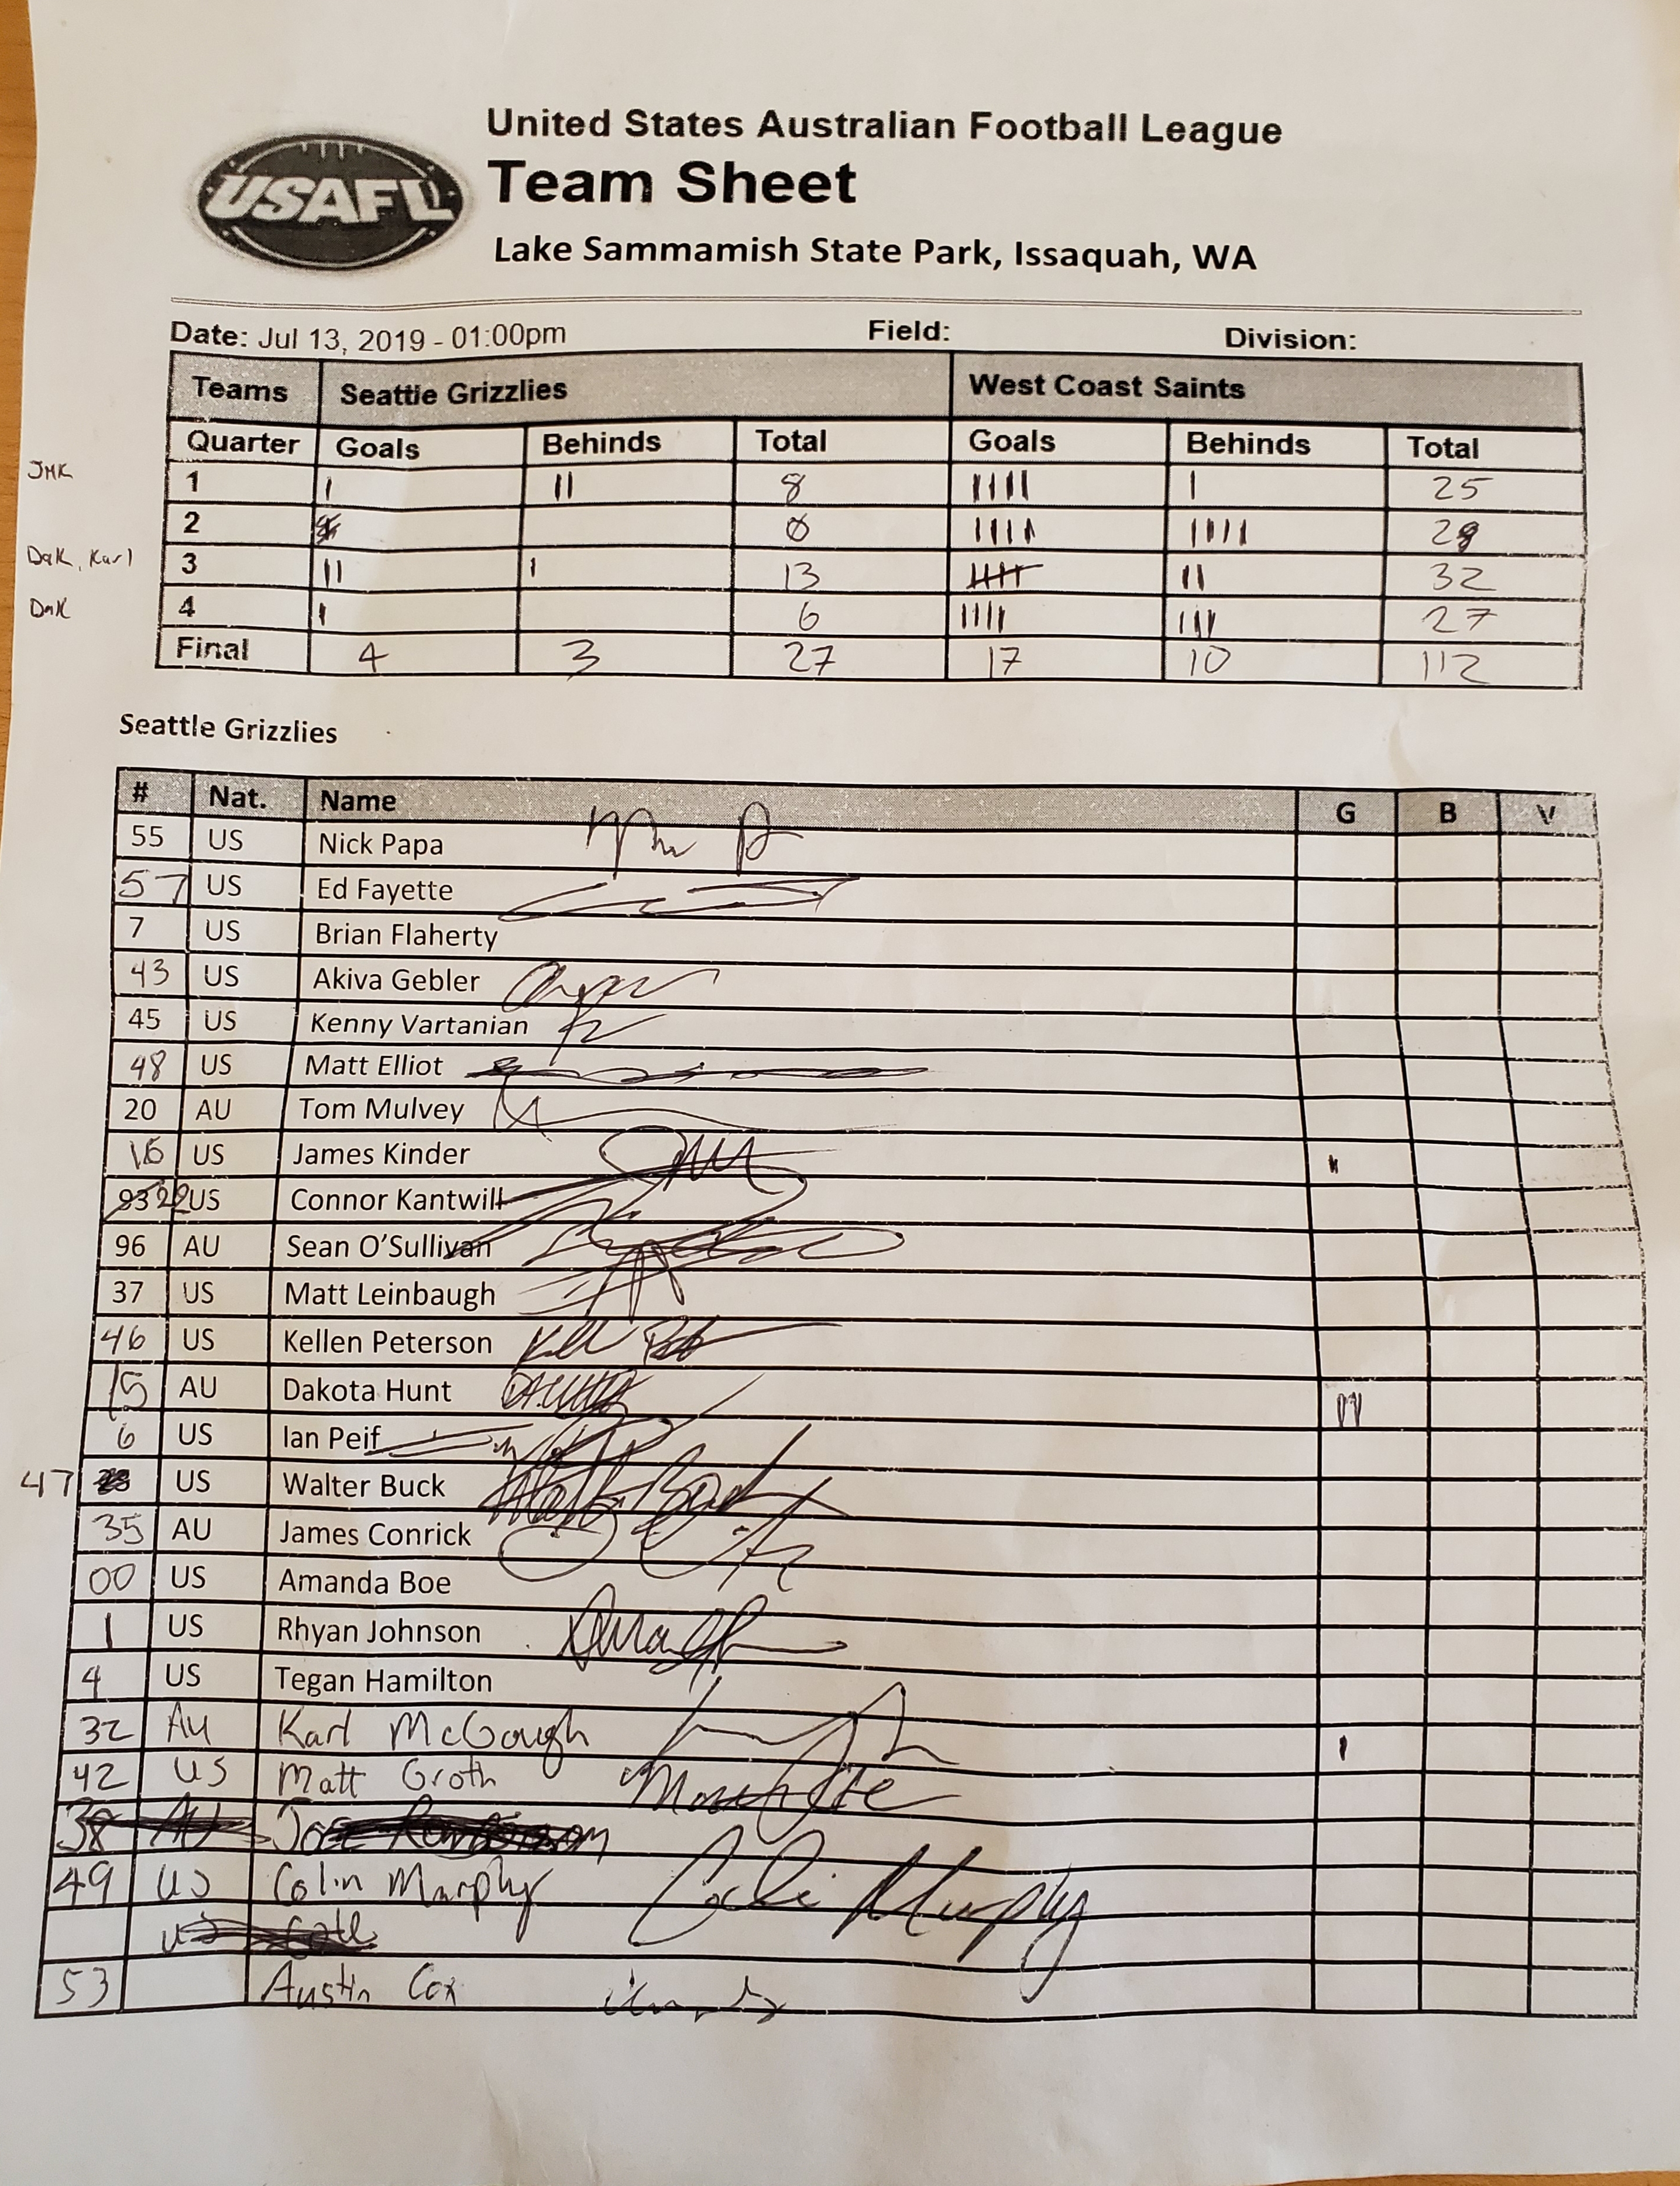 United States Australian Football League
USAFL
Team Sheet
Lake Sammamish State Park, Issaquah, WA
Date: Jul 13, 2019 - 01:00pm Field: Division:
Teams Seattle Grizzlies West Coast Saints
Quarter Goals Behinds Total Goals Behinds Total
JMK 1 | || 8 |||| | 25
2 0 |||| |||| 28
Dak, Karl 3 || | 13 |||| || 32
Dak 4 | 6 |||| ||| 27
Final 4 3 27 17 10 112
Seattle Grizzlies
# Nat. Name G B V
55 US Nick Papa
57 US Ed Fayette
7 US Brian Flaherty
43 US Akiva Gebler
45 US Kenny Vartanian
48 US Matt Elliot
20 AU Tom Mulvey
16 US James Kinder |
93 22 US Connor Kantwill
96 AU Sean O'Sullivan
37 US Matt Leinbaugh
46 US Kellen Peterson
15 AU Dakota Hunt ||
6 US Ian Peif
47 US Walter Buck
35 AU James Conrick
00 US Amanda Boe
1 US Rhyan Johnson
4 US Tegan Hamilton
32 AU Karl McGough |
42 US Matt Groth
38 AU Joe
49 US Colin Murphy Colin Murphy
US
53 Austin Cox